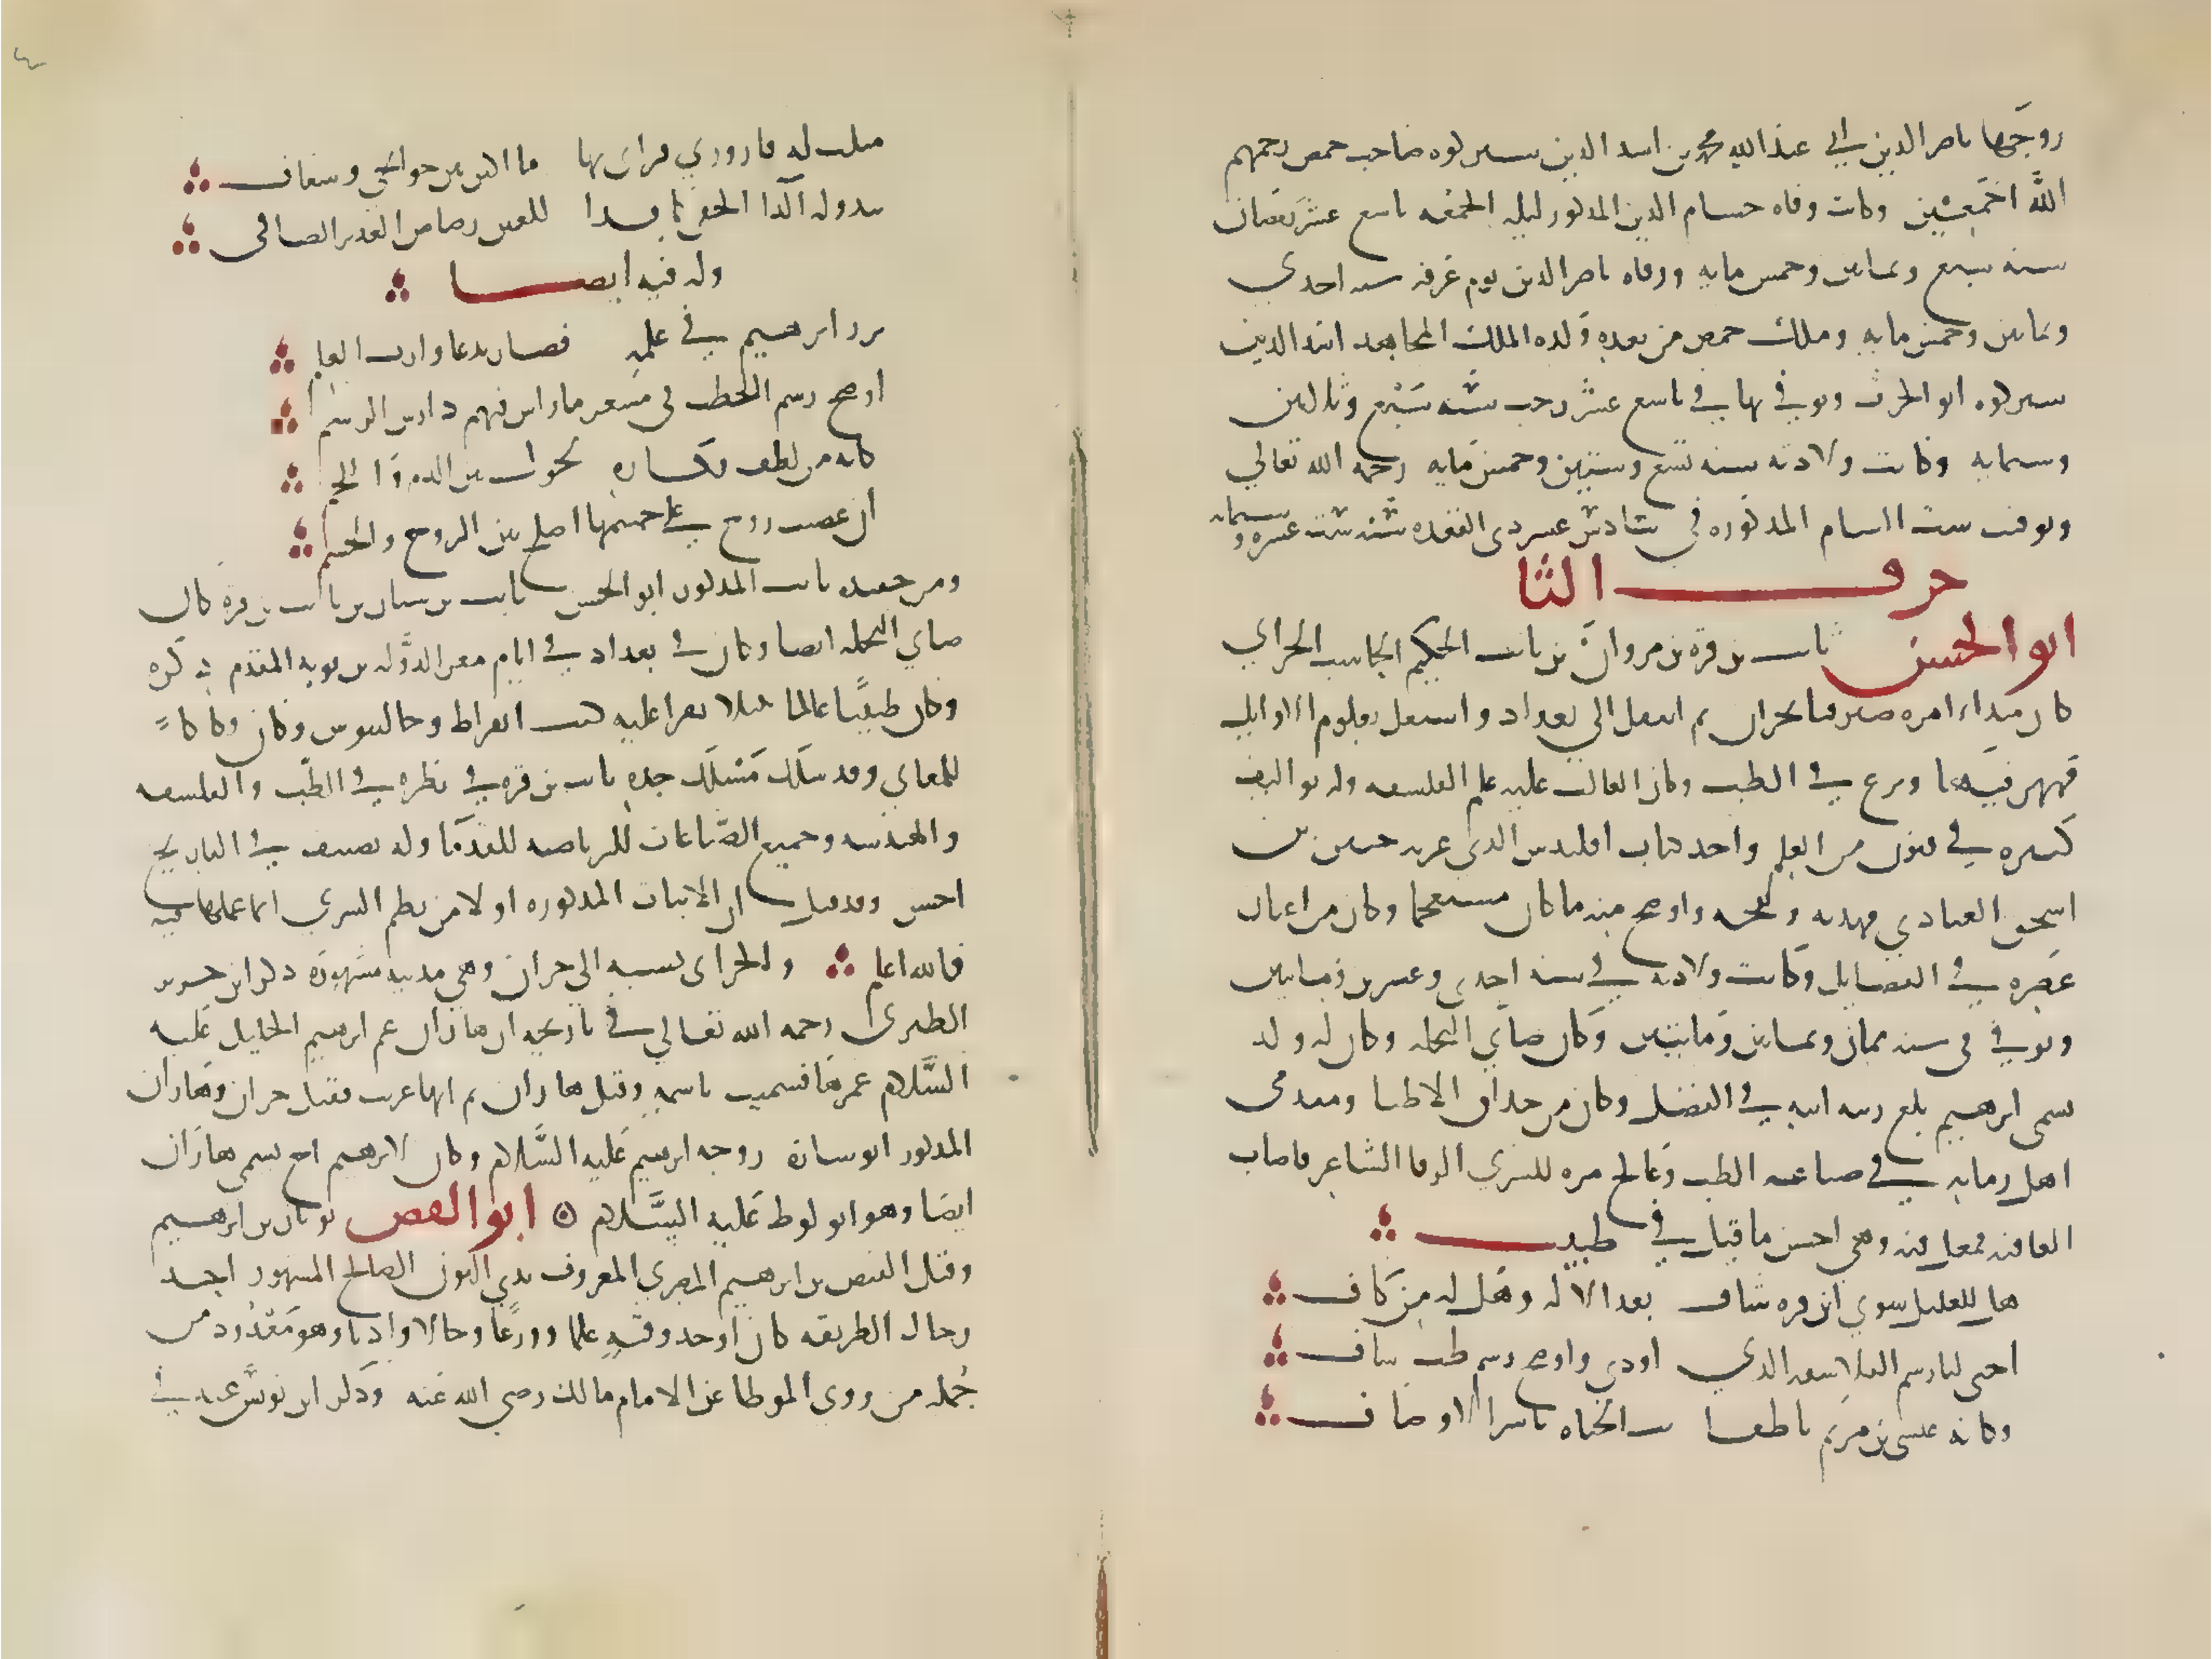 زوجها ناصر الدين ابي عبد الله محمد بن اسد الدين سيركوه صاحب حمص رحمهم
الله اجمعين وكانت وفاه حسام الدين المذكور ليله الجمعه تاسع عشر رمضان
سنه سبع وثمانين وخمس مايه ووفاه ناصر الدين يوم عرفه سنه احدي
وثمانين وخمس مايه وملك حمص من بعده ولده الملك المجاهد اسد الدين
سيركوه ابو الحرث وتوفي بها في تاسع عشر رجب سنه سبع وثلاثين
وستمايه وكانت ولادته سنه تسع وستين وخمس مايه رحمه الله تعالي
وتوفت ست الشام المذكوره في سادس عشر ذي القعده سنه ست عشره وستمايه
حرف الثا
ابو الحسن ثابت بن قره بن مروان بن ثابت الحكيم الحاسب الحراني
كان مبداء امره صيرفيا بحران ثم انتقل الي بغداد واشتغل بعلوم الاوايل
فمهر فيها وبرع في الطب وكان الغالب عليه علم الفلسفه وله تواليف
كثيره في فنون من العلم واخذ كتاب اقليدس الذي عربه حنين بن
اسحق العبادي فهذبه ونقحه واوضح منه ما كان مستعجما وكان من اعيان
عصره في الفضايل وكانت ولادته في سنه احدي وعشرين ومايتين
وتوفي في سنه ثمان وثمانين ومايتين وكان صابي النحله وكان له ولد
يسمي ابرهيم بلغ رتبه ابيه في الفضل وكان من حذاق الاطبا ومقدمي
اهل زمانه في صناعه الطب وعالج مره للسري الرفا الشاعر فاصاب
العافيه فعمل فيه وهي احسن ما قيل في طبيب
هل للعليل سوي ابن قره شاف بعد الاله وهل له من كاف
احيي لنا رسم الفلاسفه الذي اودي واوضح رسم طب عاف
وكانه عيسي بن مريم ناطقا يهب الحياه بايسر الاوصاف
مثلت له قاروري فراى بها ما اكتن بين جوانحي وشغاف
يبدو له الدا الخفي كما بدا للعين رضراض الغدير الصافي
وله فيه ايضا
برز ابرهيم في علمه فصار يدعا وارث العلم
اوضح رسم الطب في معشر ما زال فيهم دارس الرسم
كانه من لطف افكاره يجول بين الدم واللحم
ان غضبت روح علي جسمها اصلح بين الروح والجسم
ومن حفده ثابت المذكور ابو الحسن ثابت بن سنان بن ثابت بن قره كان
صابي النحله ايضا وكان في بغداد في ايام معز الدوله بن بويه المقدم ذكره
وكان طبيبا عالما نبيلا يقرا عليه كتب ابقراط وجالينوس وكان فكاكا
للمعاني وقد سلك مسلك جده ثابت بن قره في نظره في الطب والفلسفه
والهندسه وجميع الصناعات للرياضه للقدما وله تصنيف في التاريخ
احسن وقد قيل ان الابيات المذكوره اولا من نظم السري انما عملها فيه
فالله اعلم والحراني نسبه الي حران وهي مدينه مشهوره ذكر ابن جرير
الطبري رحمه الله تعالي في تاريخه ان هاران عم ابرهيم الخليل عليه
السلام عمرها فسميت باسمه وقيل هاران ثم انها عربت فقيل حران وهاران
المذكور ابو ساره زوجه ابرهيم عليه السلام وكان لابرهيم اخ يسمي هاران
ايضا وهو ابو لوط عليه السلام ابو الفيض ثوبان بن ابرهيم
وقيل الفيض بن ابرهيم المصري المعروف بذي النون الصالح المشهور احد
رجال الطريقه كان اوحد وقته علما وورعا وحالا وادبا وهو معدود من
جمله من روى الموطا عن الامام مالك رضي الله عنه وذكر ابن يونس عنه في